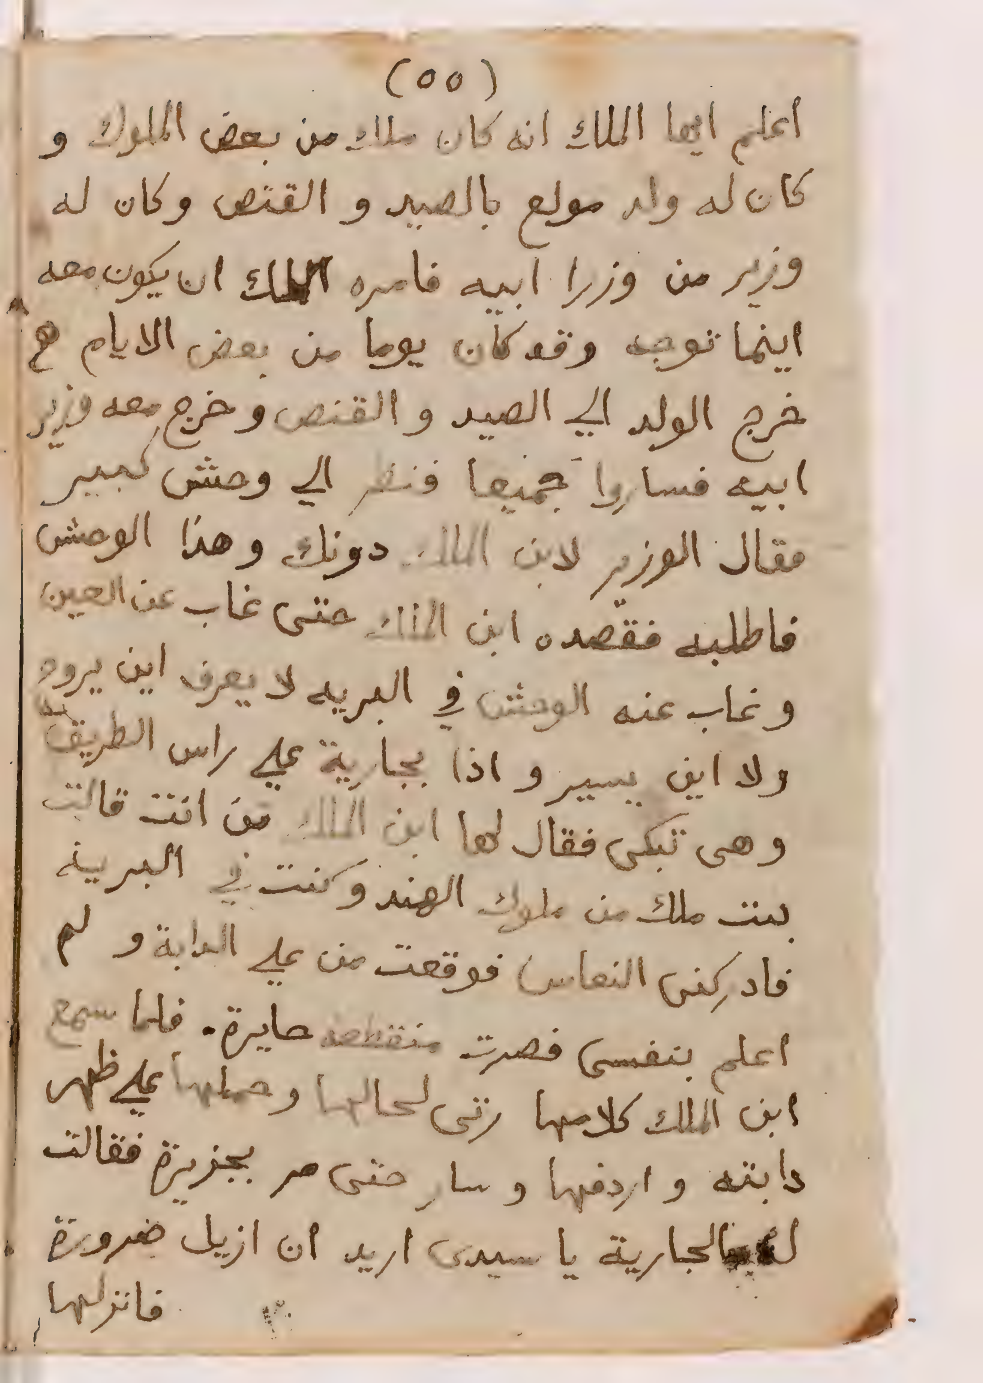 (٥٥)
اعلم ايها الملك انه كان ملك من بعض الملوك و
كان له ولد مولع بالصيد و القنص وكان له
وزير من وزرا ابيه فامره الملك ان يكون معه
اينما توجه وقد كان يوما من بعض الايام
خرج الولد الي الصيد و القنص و خرج معه وزير
ابيه فساروا جميعا فنظر الي وحش كبير
فقال الوزير لابن الملك دونك و هذا الوحش
فاطلبه فقصده ابن الملك حتى غاب عن العين
و غاب عنه الوحش في البريه لا يعرف اين يروح
ولا اين يسير و اذا بجارية علي راس الطريق
و هى تبكى فقال لها ابن الملك من انت قالت
بنت ملك من ملوك الهند و كنت في البرية
فادركنى النعاس فوقعت من علي الدابة و لم
اعلم بنفسى فصرت منقطعه حايرة. فلما سمع
ابن الملك كلامها رثى لحالها و حملها علي ظهر
دابته و اردفها و سار حتى مر بجزيرة فقالت
له الجارية يا سيدى اريد ان ازيل ضرورة
فانزلها